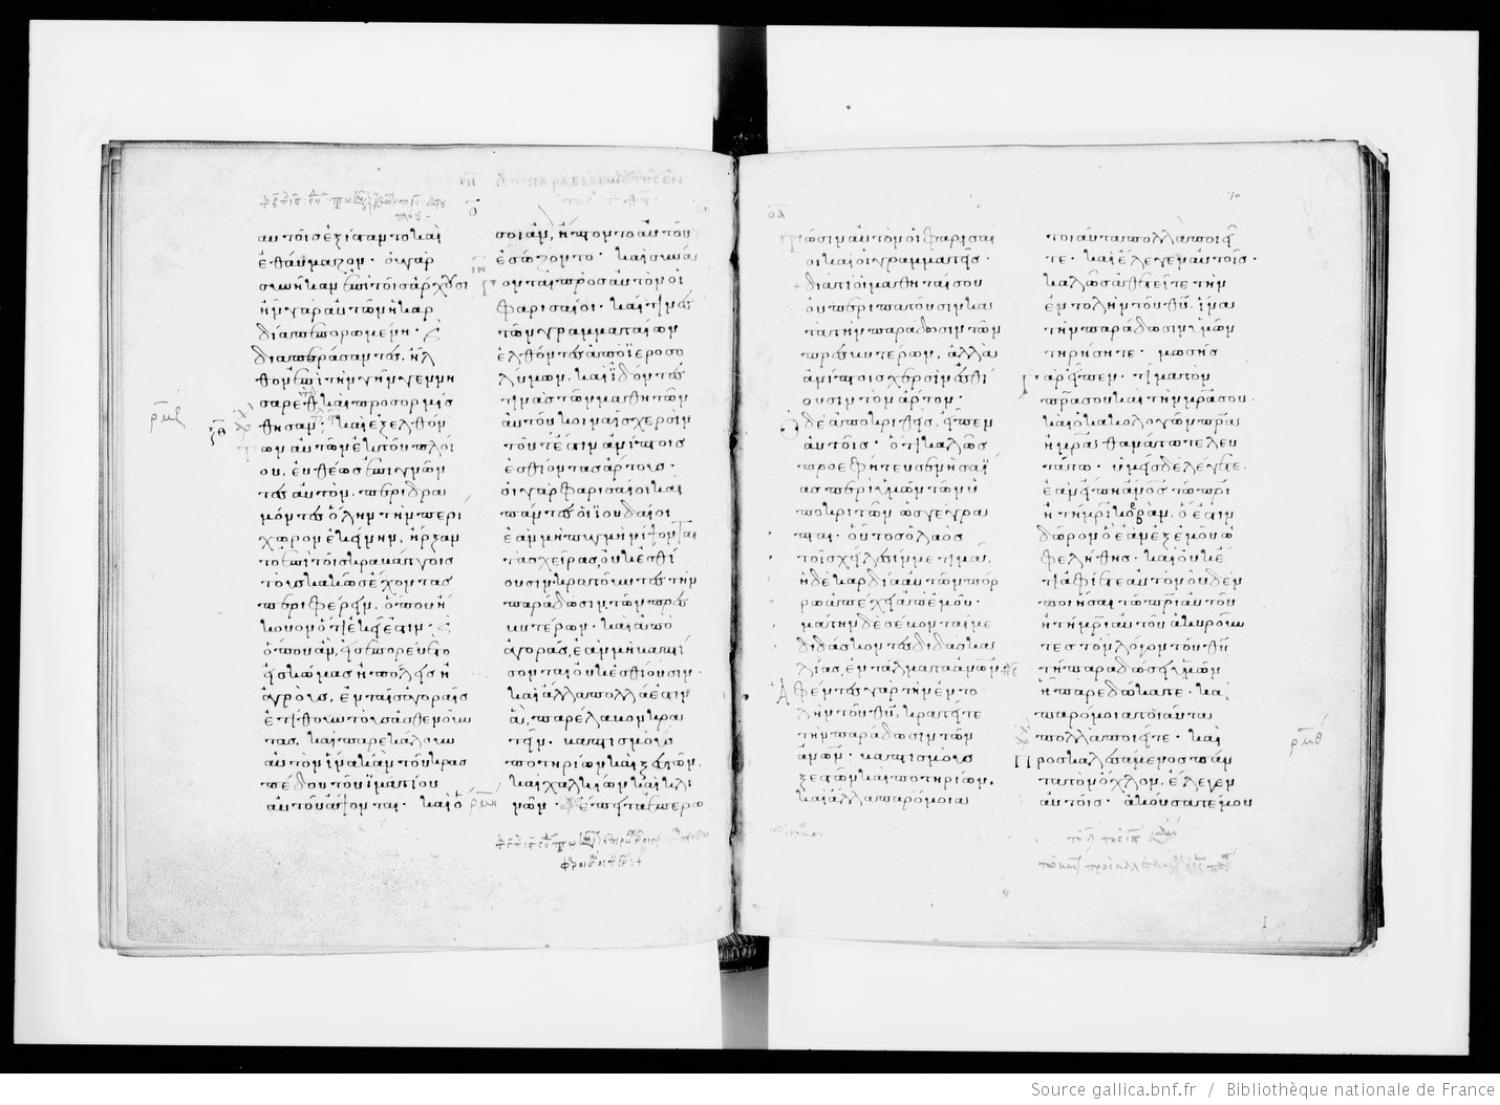 αυτοῖς ἐξίσταντο καὶ
ἐθαύμαζον· οὐ γὰρ
συνῆκαν ἐπὶ τοῖς ἄρτοις
ἦν γὰρ αὐτῶν ἡ καρ
δία πεπωρωμένη·
διαπεράσαντες, ἦλ
θον ἐπὶ τὴν γῆν γεννη
σαρὲθ καὶ προσορμίσ
θησαν· καὶ ἐξελθόν
των αὐτῶν ἐκ τοῦ πλοί
ου, εὐθέως ἐπιγνόν
τες αὐτὸν, περιδρα
μόντες ὅλην τὴν περί
χωρον ἐκείνην, ἤρξαν
το ἐπὶ τοῖς κραβάττοις
τοὺς κακῶς ἔχοντας
περιφέρειν, ὅπου ἤ
κουον ὅτι ἐκεῖ ἐστιν·
ὅπου ἂν, εἰσεπορεύετο
εἰς κώμας ἢ πόλεις ἢ
ἀγροὺς, ἐν ταῖς ἀγοραῖς
ἐτίθουν τοὺς ἀσθενοῦν
τας, καὶ παρεκάλουν
αὐτὸν ἵνα κἂν τοῦ κρασ
πέδου τοῦ ἱματίου
αὐτοῦ ἅψονται· καὶ ὅ
σοι ἂν, ἥπτοντο αὐτοῦ
ἐσώζοντο· καὶ συνά
γονται πρὸς αὐτὸν οἱ
φαρισαῖοι· καί τινες
τῶν γραμματαίων
ἐλθόντες ἀπὸ ἱεροσο
λύμων. καὶ ἰδόντες
τινὰς τῶν μαθητῶν
αὐτοῦ κοιναῖς χερσὶν
τοῦτέστιν ἀνίπτοις
ἐσθίοντας ἄρτους·
οἱ γὰρ φαρισαῖοι καὶ
πάντες οἱ ἰουδαῖοι
ἐὰν μὴ πυγμῇ νίψονται
τὰς χεῖρας, οὐκ ἐσθί
ουσιν κρατοῦντες τὴν
παράδωσιν τῶν πρεσ
βυτέρων· καὶ ἀπὸ
ἀγορᾶς, ἐὰν μὴ βαπτί
σονται οὐκ ἐσθίουσιν·
καὶ ἄλλα πολλά ἐστιν
ἃ, παρέλαβον κρα
τεῖν· βαπτισμοὺς
ποτηρίων καὶ ξεστῶν,
καὶ χαλκίων καὶ κλι
νῶν· ἔπειτα ἐπερω
οα
τῶσιν αὐτὸν οἱ φαρισαῖ
οι καὶ οἱ γραμματεῖς·
διατί οἱ μαθηταί σου
οὐ περιπατοῦσιν κα
τὰ τὴν παράδωσιν τῶν
πρεσβυτέρων, ἀλλὰ
ἀνίπτοις χερσὶν ἐσθί
ουσιν τὸν ἄρτον·
Ὁ δὲ ἀποκριθεὶς, εἶπεν
αὐτοῖς· ὅτι καλῶς
προεφήτευσεν ἡσαΐ
ας περὶ ὑμῶν τῶν ὑ
ποκριτῶν ὡς γέγρα
πται· οὗτος ὁ λαὸς
τοῖς χείλεσίν με τιμᾶ,
ἡ δὲ καρδία αὐτῶν πόρ
ρω ἀπέχει ἀπ ἐμοῦ·
μάτην δὲ σέβονταί με
διδάσκοντες διδασκα
λίας, ἐντάλματα ἀνων
Ἀφέντες γὰρ τὴν ἐντο
λὴν τοῦ θυ, κρατεῖτε
τὴν παράδωσιν τῶν
ἀνων· βαπτισμοὺς
ξεστῶν καὶ ποτηρίων.
καὶ ἄλλα παρόμοια
τοιαῦτα πολλὰ ποιεῖ
τε· καὶ ἔλεγεν αὐτοῖς·
καλῶς ἀθετεῖτε τὴν
ἐντολὴν τοῦ θυ, ἵνα
τὴν παράδωσιν ὑμῶν
τηρήσητε· μωσῆς
γὰρ εἶπεν· τίμα τὸν
πρα σου καὶ τὴν μρα σου.
καὶ ὁ κακολογῶν πρα
ἢ μρα θανάτω τελευ
τάτω· ὑμεῖς δὲ λέγετε·
ἐὰν εἴπη ἄνος τῶ πρι
ἢ τῆ μρι κορβαν, ὅ ἐστιν
δῶρον ὃ ἐὰν ἐξ ἐμοῦ ὠ
φεληθῆς· καὶ οὐκέ
τι ἀφίετε αὐτὸν οὐδὲν
ποιῆσαι τῶ πρι αὐτοῦ
ἢ τῆ μρι αὐτοῦ ἀκυροῦν
τες τὸν λόγον τοῦ θυ
τῆ παραδώσει ὑμῶν
ἣ παρεδώκατε· καὶ
παρόμοια τοιαῦτα
πολλὰ ποιεῖτε· καὶ
Προσκαλεσάμενος πάν
τα τὸν ὄχλον, ἔλεγεν
αὐτοῖς· ἀκούσατέ μου
Source gallica.bnf.fr / Bibliothèque nationale de France